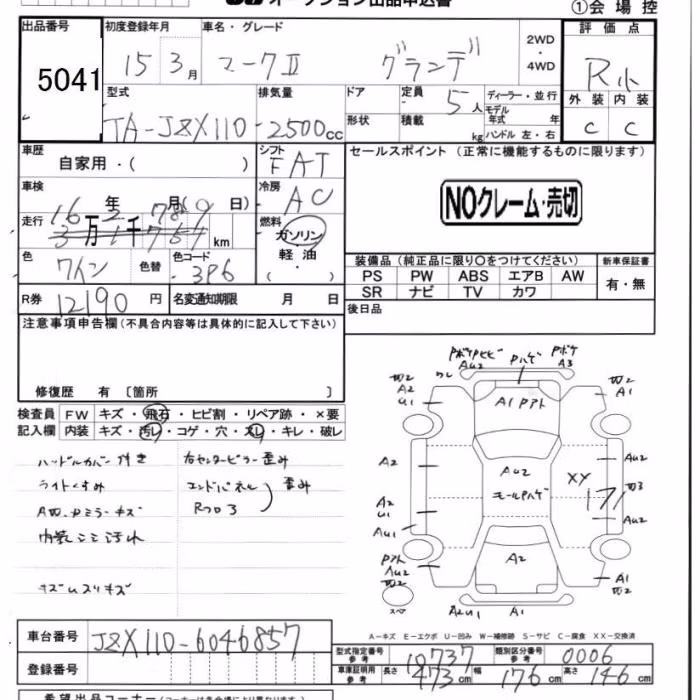 オークション出品申込書
①会場控
出品番号 初度登録年月 車名・グレード 2WD・4WD 評価点
5041 15 3月 マークⅡ グランデ R小
外装 内装
C C
型式 排気量 ドア 定員 ディーラー・並行
形状 積載 モデル年式 年
TA-JZX110 2500cc 5人 kg ハンドル 左・右
車歴 シフト セールスポイント (正常に機能するものに限ります)
自家用・( ) FAT
NOクレーム・売切
車検 年 月( 日) 冷房 AC
走行 16 2 789
3万1千769km 燃料 ガソリン
軽油
( )
色 ワイン 色替 色コード 3P6
装備品 (純正品に限り○をつけてください) 新車保証書
PS PW ABS エアB AW 有・無
SR ナビ TV カワ
R券 12190円 名変通知期限 月 日 後日品
注意事項申告欄(不具合内容等は具体的に記入して下さい)
修復歴 有 〔箇所 〕
検査員 FW キズ・飛石・ヒビ割・リペア跡・×要
記入欄 内装 キズ・汚レ・コゲ・穴・スレ・キレ・破レ
ハンドルカバー付き 右センターピラー歪み
ライトくすみ エンドパネル 歪み
Rフロア
内装ここ汚れ
キズムスリキズ
PハゲPボケ
A3
A2
U1
A1
A1Pアト
A2 AU2 XX AU2
モールPハゲ
A2
U1
AU1 AU2
Pアト
AU2 A2 A1
スペア
A2U1 A1
A-キズ E-エクボ U-凹み W-補修跡 S-サビ C-腐食 XX-交換済
車台番号 JZX110-6046857
登録番号
型式指定番号 参考 10737 類別区分番号 参考 0006
車庫証明用 参考 長さ 473cm 幅 176cm 高さ 146cm
希望出品コーナー